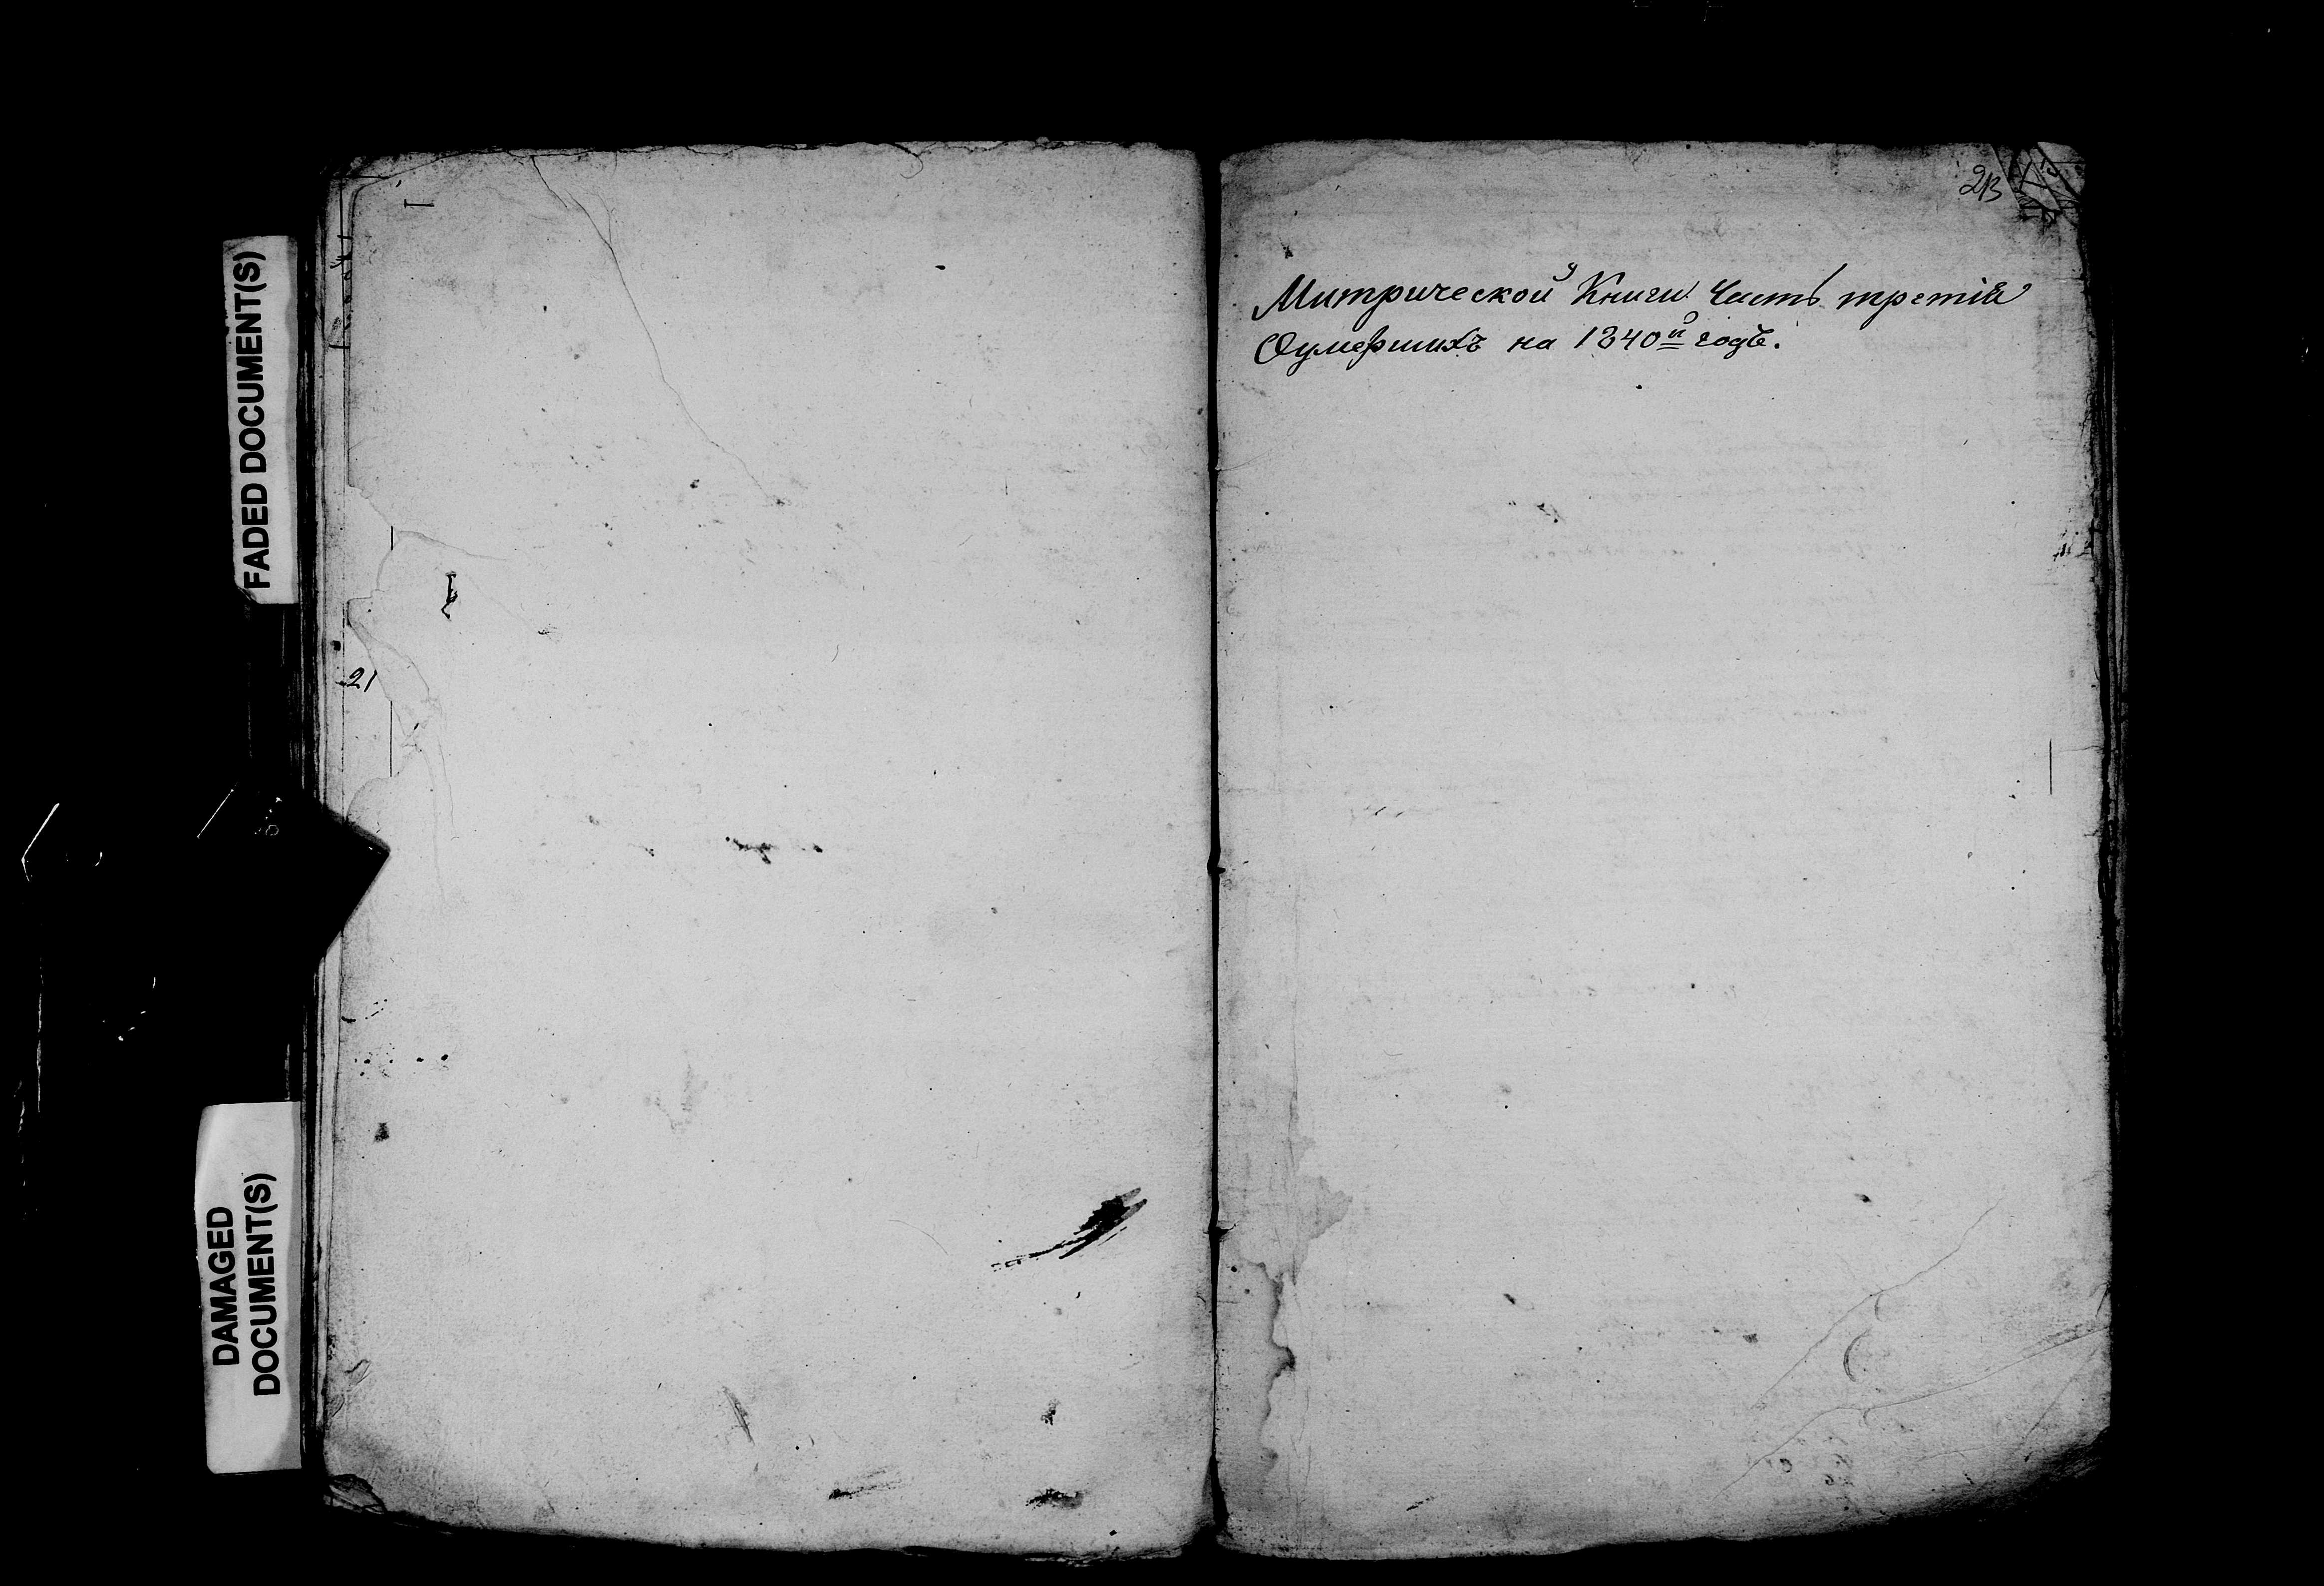 FADED DOCUMENT(S)
21
DAMAGED
DOCUMENT(S)
Митрической Книги Часть третія
Оумершихъ на 1840й годъ.